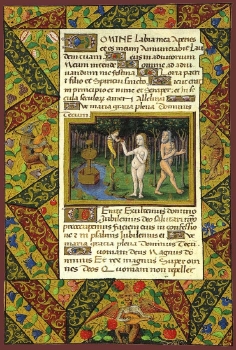 OMINE Labia mea Aperies
et os meum Annunciabit Lau
dem tuam Deus in adiutorium
Meum intende Domine ad adiu
vandum me festina Gloria patri
et filio et Spiritui sancto Sicut erat
in principio et nunc et Semper, et in se
cula seculorum amen Alleluia
maria gracia plena Dominus
Tecum
Venite Exultemus domino
Iubilemus deo Salutari nostro
preocupemus faciem eius in confessio
ne et in psalmis Iubilemus ei Ave
maria gracia plena Dominus Tecum
Quoniam deus Magnus do
minus Et rex magnus Super om
nes deos Quoniam non repellet